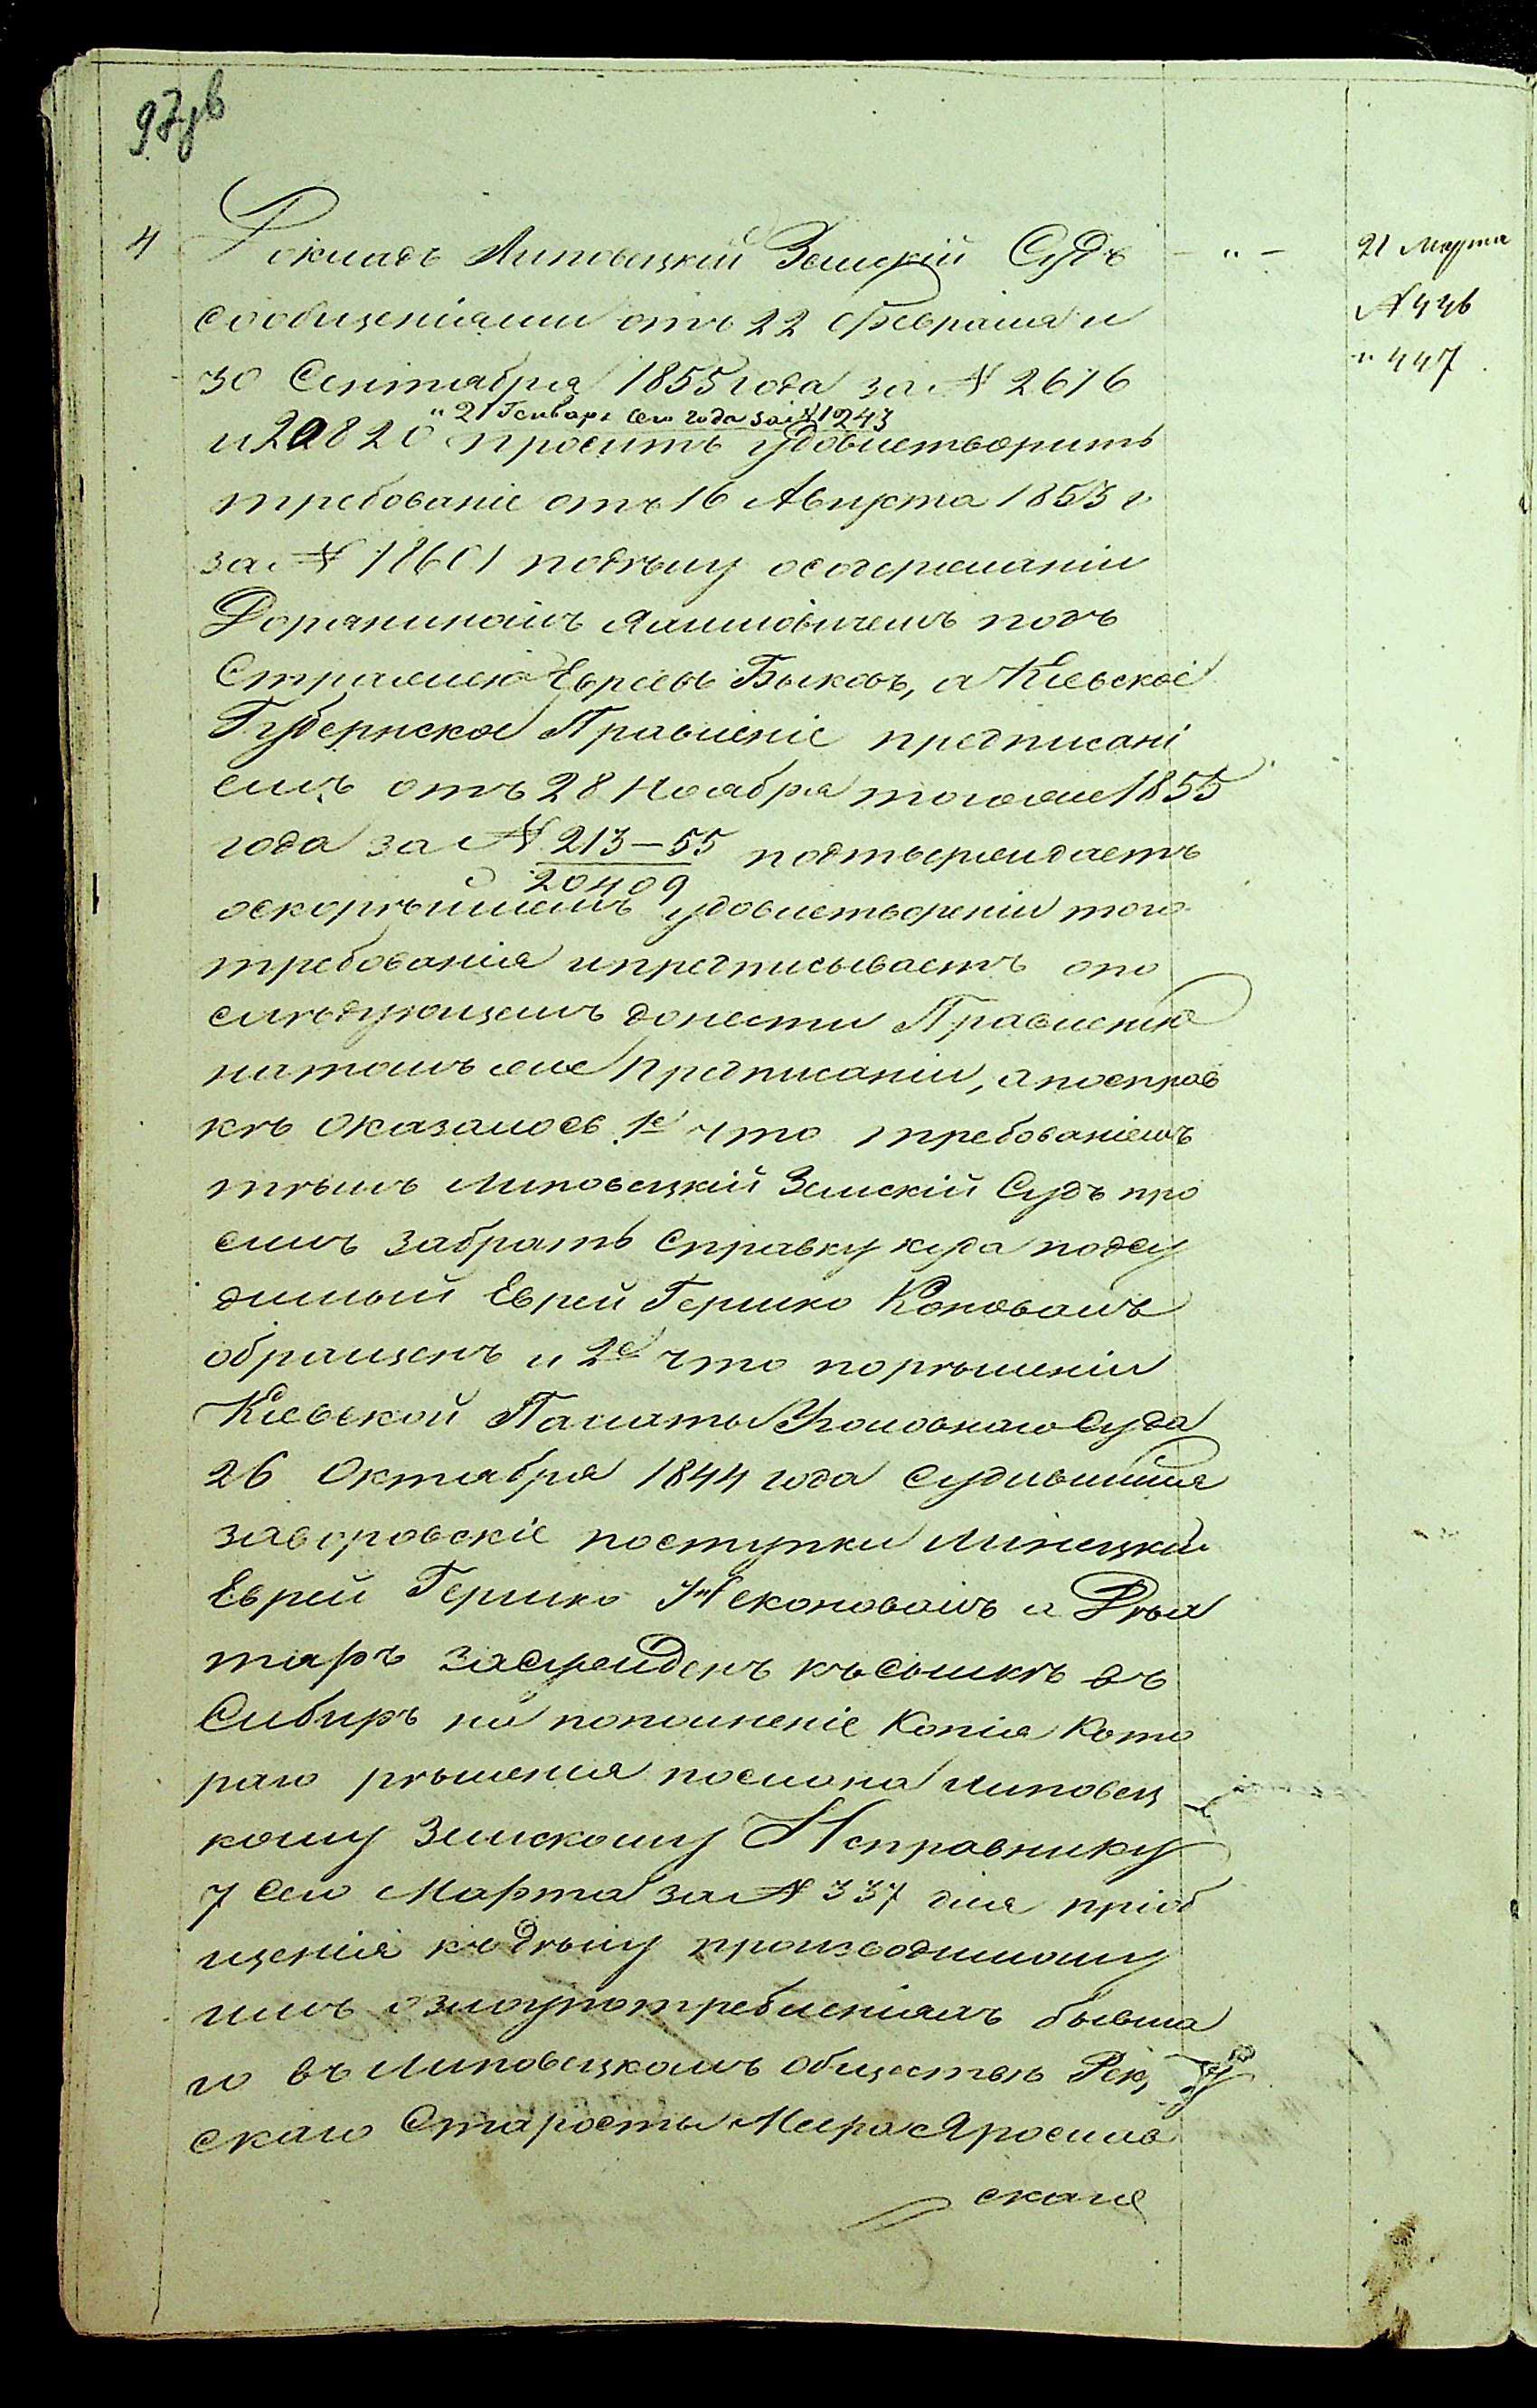 97 об
4
Докладъ Липовецкій Земскій Судъ — " —
21 Марта
№ 446
" 447
сообщеніями отъ 22 Февраля и
30 Сентября 1855 года за № 2616
" 21 Генваря сего года за № 1243
и 20820 проситъ удовлетворить
требованіе отъ 16 Августа 1853 г
за № 18601 подѣлу осодержаніи
Дворяниномъ подъ
Стражею Евреевъ Быковъ, а Кіевское
Губернское Правленіе предписані
емъ отъ 28 Ноября тогоже 1855
года за № 213—55
20409
подтверждаетъ
оскорѣйшемъ удовлетвореніи того
требованія ипредписываетъ опо
слѣдующемъ донести Правленію
натомъ же Предписаніи, апосправ
кѣ оказалось 1е что требованіемъ
тѣмъ Липовецкій Земскій Судъ про
силъ забрать справку куда подсу
димый Еврей Гершко Коновалъ
обращенъ и 2е что порѣшеніи
Кіевской Палаты Уголовнаго Суда
26 Октября 1844 года судившійся
заворовскіе поступки Линецкій
Еврей Гершко Коновалъ а
заслужденъ къссылкѣ въ
Сибирь на поселеніе Копія кото
раго рѣшенія послана Липовец
кому Земскому Исправнику
7 сего Марта за № 337 для пріоб
щенія къдѣлу производимому
имъ озлоупотребленіямъ бывша
го въ Липовецкомъ обществѣ
скаго Старосты Мера Ярослав
скаго